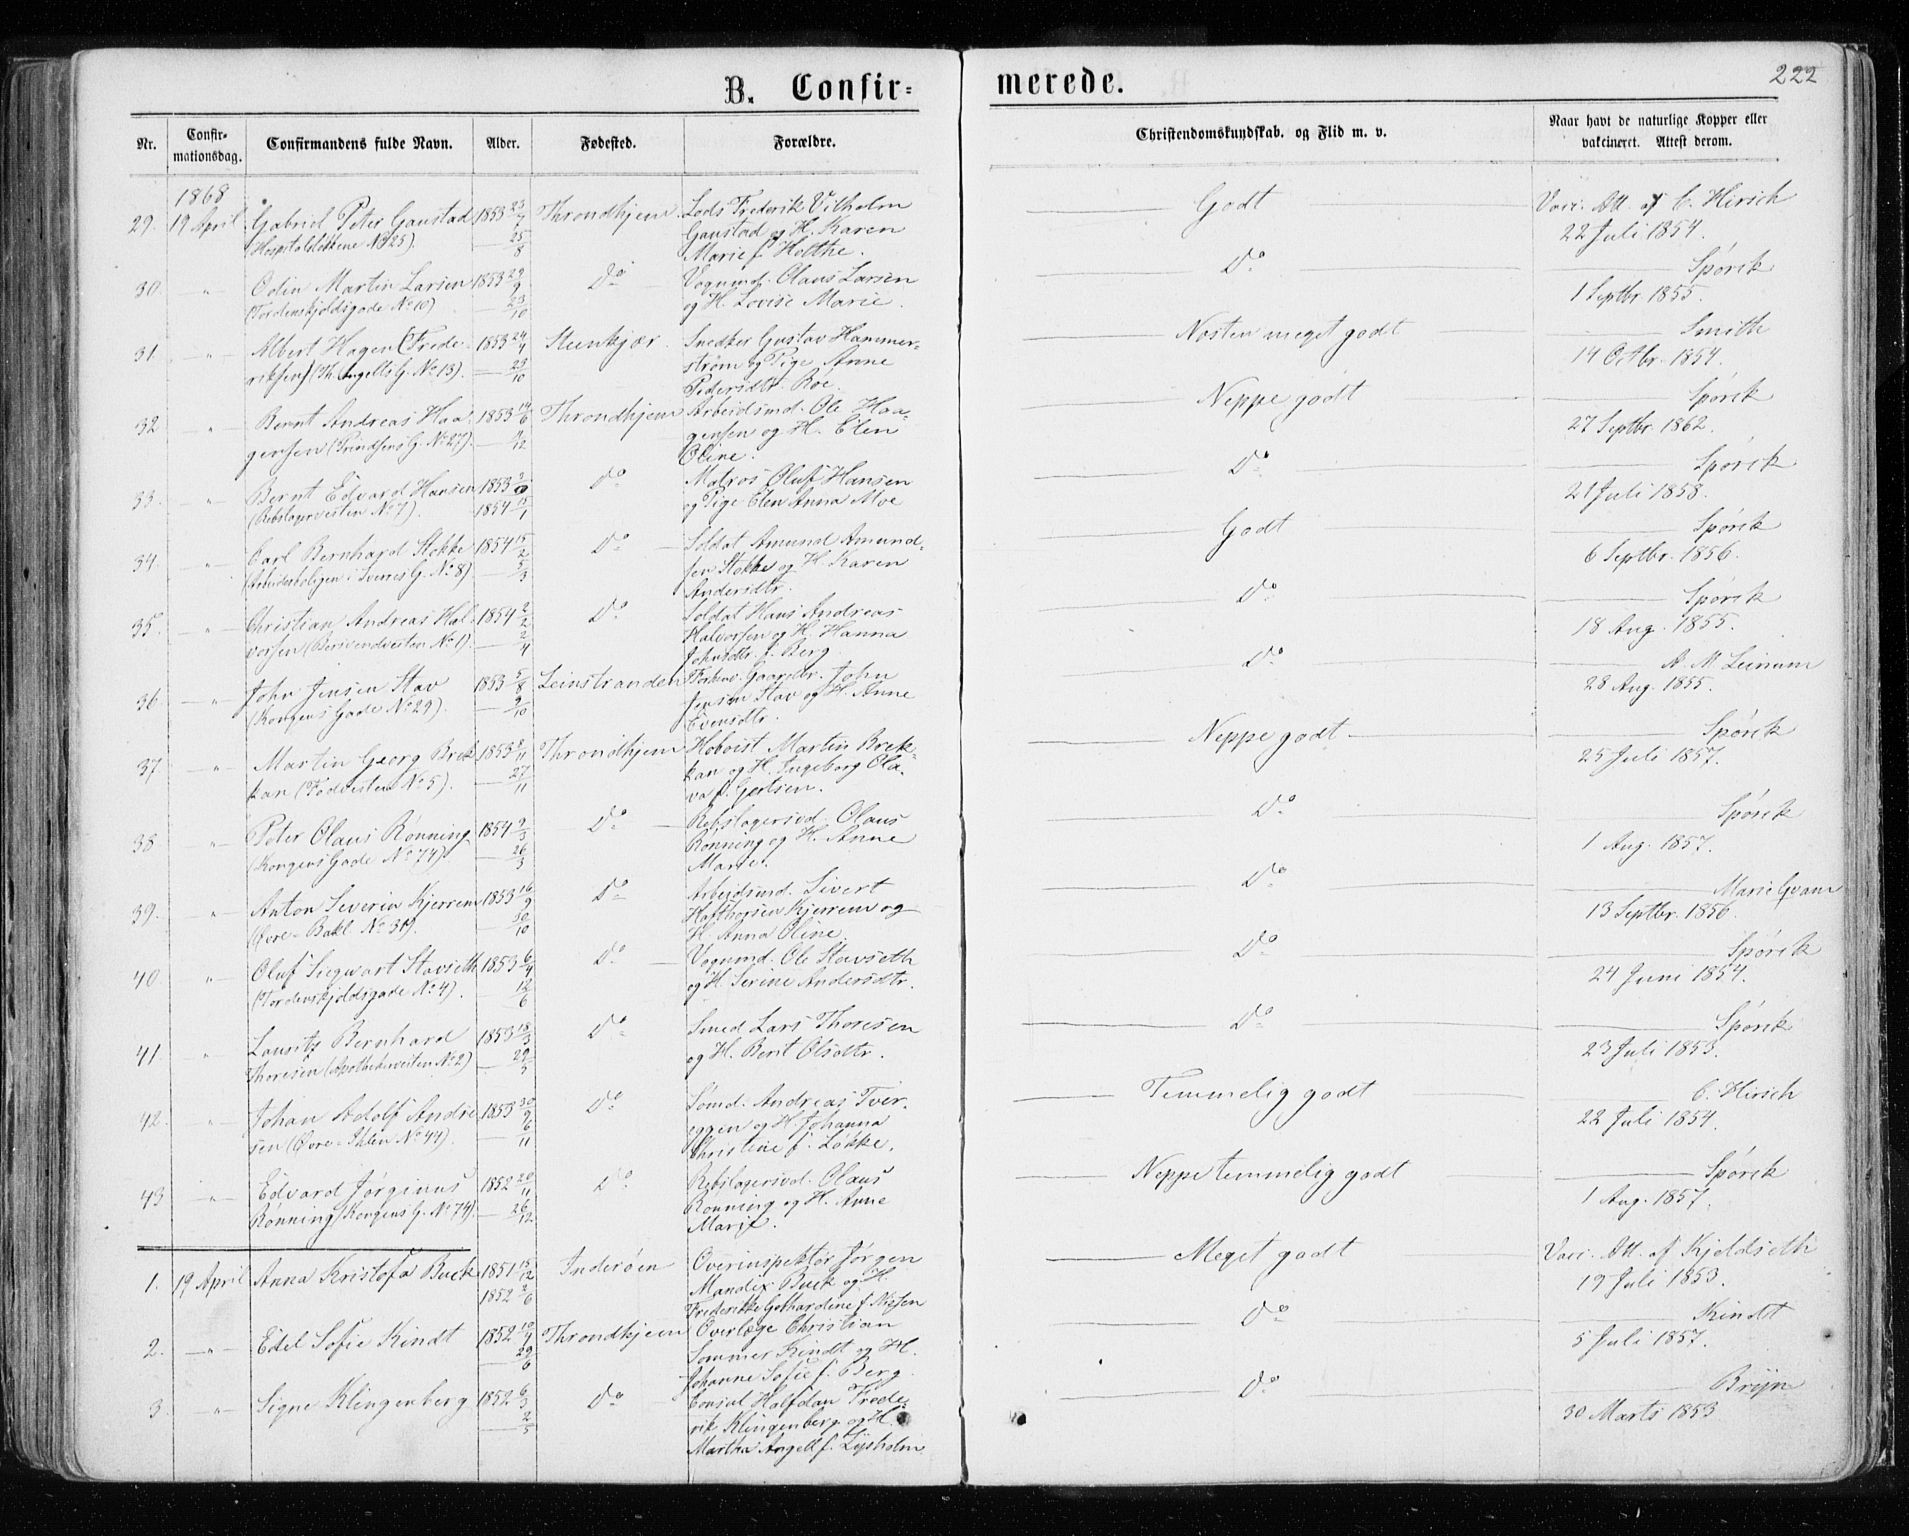 B. Confir=
merede.
222
Nr.
Confir-
mationsdag.
Confirmandens fulde Navn.
Alder.
Fødested.
Forældre.
Christendomskundskab. og Flid m. v.
Naar havt de naturlige Kopper eller
vakcineret. Attest derom.
1868
29. 19 April. Gabriel Peter Gaustad 1853 23/7 Throndhjem. Lods Frederik Vilhelm Godt Vacc. Att. af C. Hirsch
(Hospitalsløkkene No 25). — 25/8 Gaustad og H. Karen 22 Juli 1854.
Marie f. Holthe.
30. — " — Odin Martin Larsen 1853 29/9 Do Vognmd. Olaus Larsen Do Spørik
(Tordenskjoldsgade No 10) — 23/10 og H. Lovise Marie. 1 Septbr 1855.
31. — " — Albert Hagen (Frede- 1853 24/4 Steenkjær. Snedker Gustav Hammer- Næsten meget godt Smith
riksen) (Th. Angells G. No 13). — 23/10 strøm og Pige Anne 14 Octbr. 1854.
Pedersdtr. Røe.
32. — " — Bernt Andreas Haa- 1853 14/6 Throndhjem Arbeidsmd. Ole Haa- Neppe godt Spørik
gensen (Prindsens G. No 27). — /12 gensen og H. Elen 27 Septbr. 1862.
Oline.
33. — " — Bernt Edvard Hansen 1853 Do Matros Oluf Hansen Do Spørik
(Rebslagerveiten No 7). 1854 15/1 og Pige Elen Anna Moe 21 Juli 1858.
34. — " — Carl Bernhard Stokke 1854 15/2 Do Soldat Amund Amund- Godt Spørik
(Arbeiderboligen i Sverres G. No 8) — 5/3 sen Stokke og H. Karen 6 Septbr. 1856.
Andersdtr.
35. — " — Christian Andreas Hal- 1854 2/2 Do Soldat Hans Andreas Do Spørik
vorsen (Berivendveiten No 1). — 2/4 Halvorsen og H. Hanna 18 Aug. 1855.
Johnsdtr. f. Berg.
36 — " — John Jensen Stav 1853 5/8 Leinstranden Forhav. Gaardbr. John Do A. M. Leinum
(Kongens Gade No 29). — 9/10 Jensen Stav og H. Anne 28 Aug. 1855.
Evensdtr.
37 — " — Martin Georg Brek- 1853 8/11 Throndhjem Hoboist Martin Brek- Neppe godt Spørik
kan (Fodveiten No 5). — 27/11 kan og H. Ingeborg Ola- 25 Juli 1857.
va f. Gjertsen.
38 — " — Peter Olaus Rønning 1854 9/3 Do Rebslagersvd. Olaus Do Spørik
(Kongens Gade No 74). — 26/3 Rønning og H. Anne 1 Aug. 1857.
Marie.
39. " Anton Severin Kjerrem 1853 16/9 Do Arbeidsmd. Sivert Do Marie Qvam
(Øvre-Bakl. No 31). — 30/10 Hafthorsen Kjerrem og 13 Septbr. 1856.
H. Anna Oline.
40 " Oluf Siegwart Stavseth 1853 6/4 Do Vognmd. Ole Stavseth Do Spørik
(Tordenskjoldsgade No 4). — 12/6 og H. Serine Andersdtr. 24 Juni 1854.
41 " Lauritz Bernhard 1853 18/3 Do Smed Lars Thoresen Do Spørik
Thoresen (Apothekerveiten No 2) — 29/5 og H. Berit Olsdtr. 23 Juli 1853.
42. — " — Johan Adolf Andre- 1853 30/9 Do Sømd. Andreas Tver- Temmelig godt C. Hirsch
sen (Øvre-Ihlen No 44). — 6/11 eggen og H. Johanna 22 Juli 1854.
Christine f. Løkke.
43 — " — Edvard Jørginus 1852 20/11 Do Rebslagersvd. Olaus Neppe temmelig godt Spørik
Rønning (Kongens G. No 74). — 26/12 Rønning og H. Anne 1 Aug. 1857.
Marie.
1. 19 April Anna Kristofa Buck 1851 15/12 Inderøen Overinspektør Jørgen Meget godt Vacc. Att. af Kjeldseth
1852 2/6 Mandix Buck og H. 19 Juli 1853.
Frederikke Gothardine f. Nissen
2. — " — Edel Sofie Kindt 1852 10/4 Throndhjem Overlæge Christian Do Kindt
— 29/6 Sommer Kindt og H. 5 Juli 1857.
Johanne Sofie f. Berg.
3 — " — Signe Klingenberg 1852 6/3 Do Consul Halfdan Frede- Do Bryn
— 2/5 rik Klingenberg og H. 30 Marts 1853
Martha Angell f. Lysholm